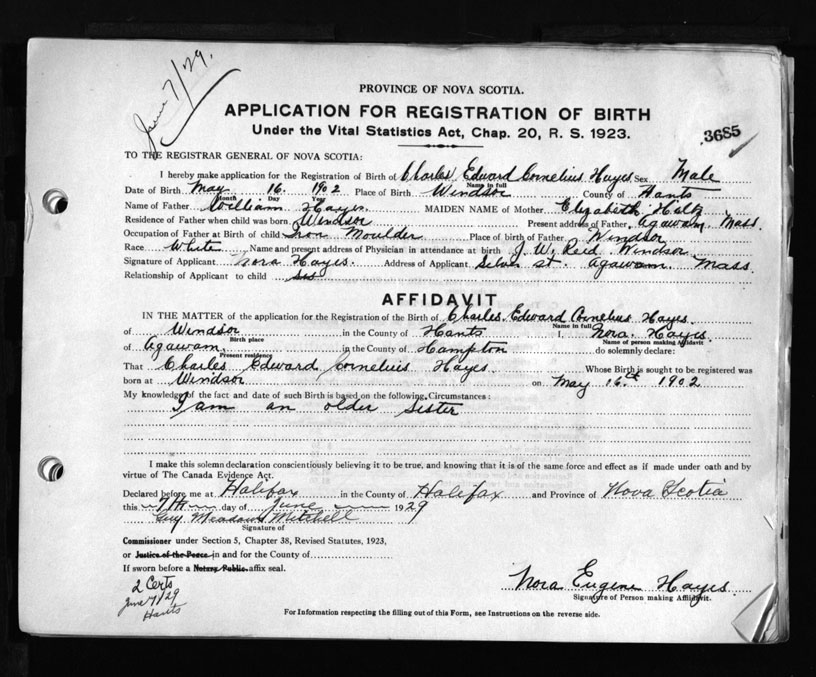 June 7/29.
PROVINCE OF NOVA SCOTIA.
APPLICATION FOR REGISTRATION OF BIRTH
Under the Vital Statistics Act, Chap. 20, R. S. 1923.
3685
TO THE REGISTRAR GENERAL OF NOVA SCOTIA:
I hereby make application for the Registration of Birth of Charles Edward Cornelius Hayes Sex Male
Name in full
Date of Birth May 16. 1902 Place of Birth Windsor County of Hants
Month Day Year
Name of Father William Hayes. MAIDEN NAME of Mother Elizabeth Holtz
Residence of Father when child was born Windsor Present address of Father, Agawam, Mass.
Occupation of Father at Birth of child Iron Moulder Place of birth of Father Windsor
Race White Name and present address of Physician in attendance at birth J. W. Reid Windsor
Signature of Applicant Nora Hayes. Address of Applicant Silver St. Agawam Mass
Relationship of Applicant to child Sis
AFFIDAVIT
IN THE MATTER of the application for the Registration of the Birth of Charles Edward Cornelius Hayes.
Name in full
of Windsor in the County of Hants I, Nora Hayes.
Birth place Name of person making Affidavit
of Agawam in the County of Hampton do solemnly declare:
Present residence
That Charles Edward Cornelius Hayes. Whose Birth is sought to be registered was
born at Windsor on May 16th 1902
My knowledge of the fact and date of such Birth is based on the following Circumstances:
I am an older Sister
I make this solemn declaration conscientiously believing it to be true, and knowing that it is of the same force and effect as if made under oath and by
virtue of The Canada Evidence Act.
Declared before me at Halifax in the County of Halifax and Province of Nova Scotia
this 7th day of June 1929
Guy Meadows Mitchell
Signature of
Commissioner under Section 5, Chapter 38, Revised Statutes, 1923,
or Justice of the Peace in and for the County of
If sworn before a Notary Public affix seal.
2 Certs
June 7/29
Hants
Nora Eugene Hayes.
Signature of Person making Affidavit.
For Information respecting the filling out of this Form, see Instructions on the reverse side.